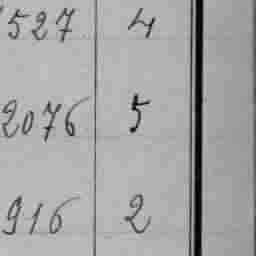 527 4
2076 5
916 2